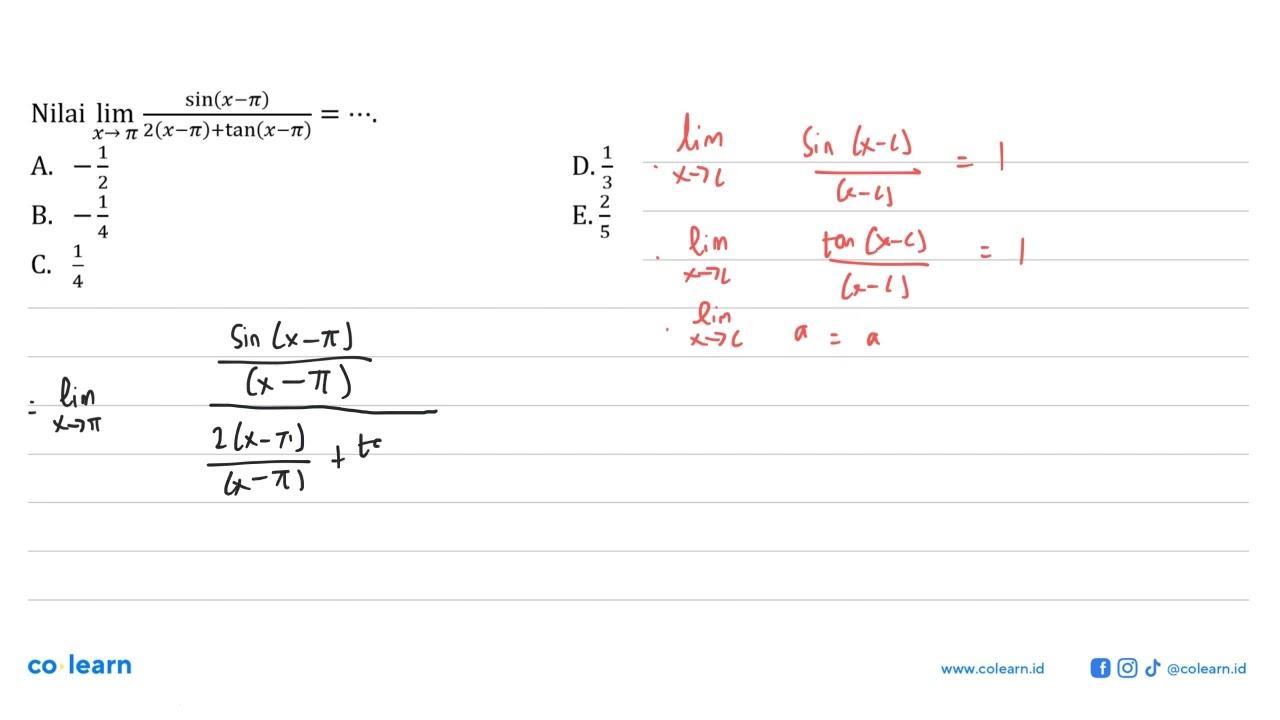 Nilai lim x→π sin(x−π) / 2(x−π)+tan(x−π) = ⋯.
A. −1/2
B. −1/4
C. 1/4
D. 1/3
E. 2/5
. lim x→c sin (x-c) / (x-c) = 1
. lim x→c tan (x-c) / (x-c) = 1
. lim x→c a = a
= lim x→π
sin (x-π)
(x-π)
2(x-π)
(x-π)
+
co learn
www.colearn.id
@colearn.id